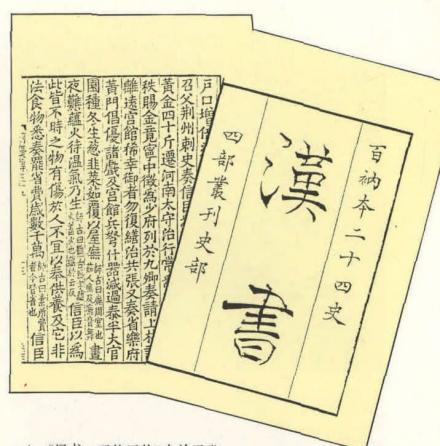 百衲本二十四史
漢書
四部叢刊史部
戶口增倍
召父荊州刺史奏信臣
黃金四十斤遷河南太守治行常
秩賜金竟寧中徵為少府列於九卿奏請上林
離遠宮館稀幸御者勿復繕治共張又奏省樂府
黃門倡優諸戲及宮館兵弩什器減過泰半大官
園種冬生蔥韭菜茹覆以屋廡 晝
夜蘊火待溫氣乃生 信臣以為
此皆不時之物有傷於人不宜以奉供養及它非
法食物悉奏罷省費歲數千萬 信臣